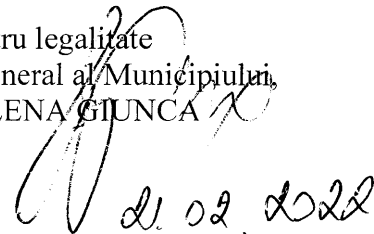 ru legalitate
neral al Municipiului,
LENA GIUNCA
21.02.2022